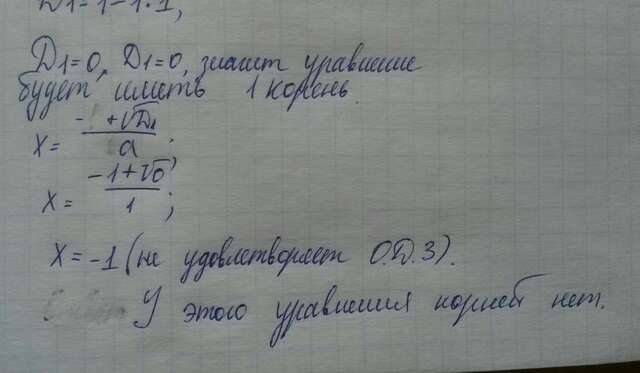 D1=1-1·1;
D1=0, D1=0, значит уравнение
будет иметь 1 корень.
x= (- +√D1)/a;
x= (-1+√0)/1;
x=-1 (не удовлетворяет О.Д.З).
У этого уравнения корней нет.